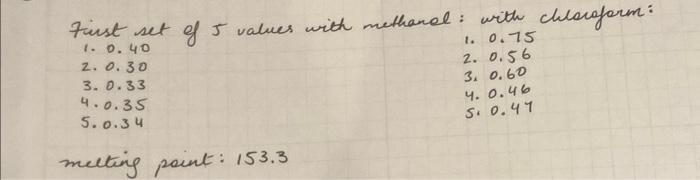 First set of 5 values with methanol: with chloroform:
1. 0.40
2. 0.30
3. 0.33
4. 0.35
5. 0.34
1. 0.75
2. 0.56
3. 0.60
4. 0.46
5. 0.47
melting point: 153.3